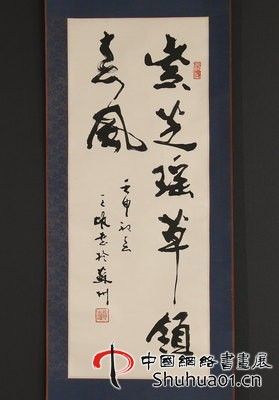 紫芝瑶草領
春風
壬申初春
書於蘇州
中國網絡書畫展
Shuhua01.cn